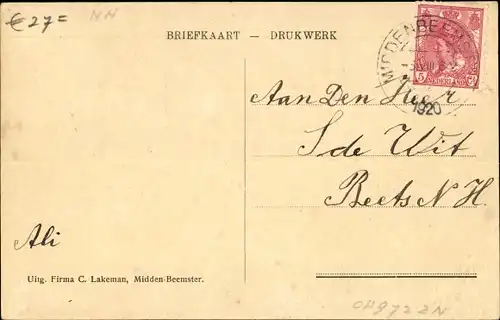 € 27=
NN
BRIEFKAART — DRUKWERK
MIDDENBEEMSTER
1920
5 NEDERLAND Ct
Aan Den Heer
S de Wit
Beets N.H.
Ali
Uitg. Firma C. Lakeman, Midden-Beemster.